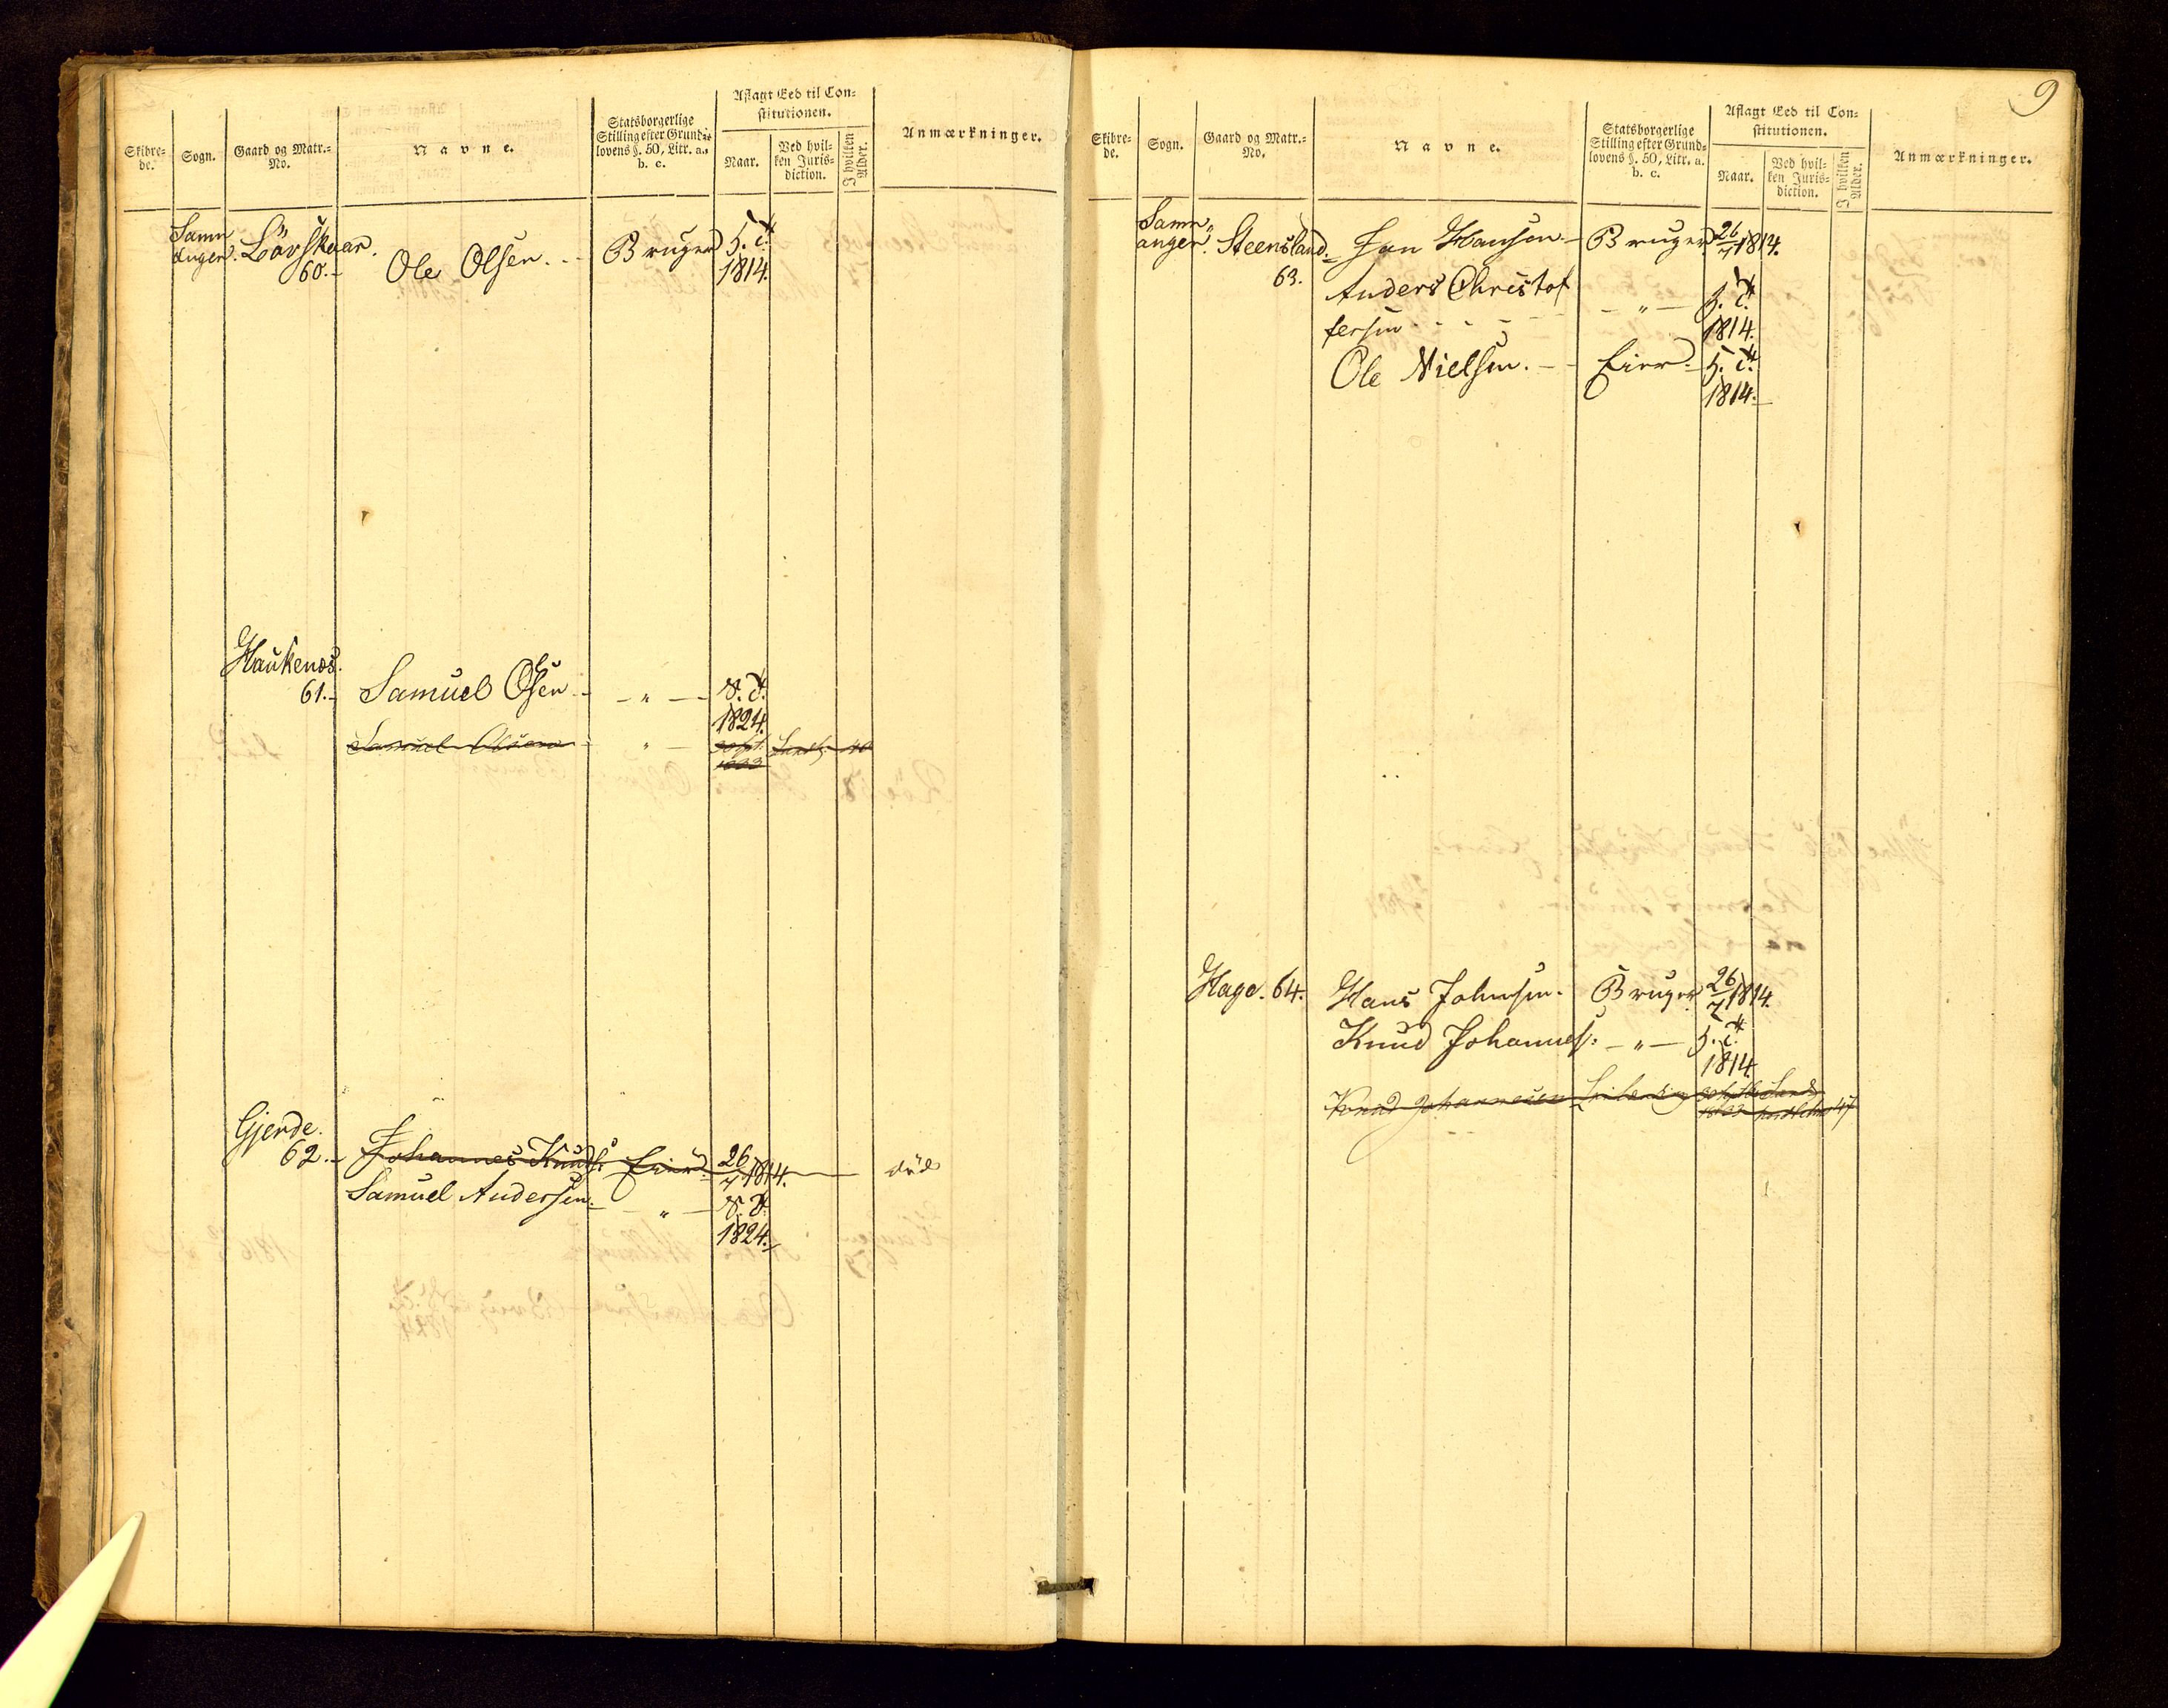 Skibrede. Sogn. Gaard og Matr.-No. Navne. Statsborgerlige Stilling efter Grundlovens §. 50, Litr. a., b. c. Aflagt Eed til Constitutionen. Naar. Ved hvilken Jurisdiction. I hvilken Alder. Anmærkninger.
Samnanger. Lövskaar. 60. Ole Olsen. Bruger 1814.
Haukenæs. 61. Samuel Olsen — „ — 1824.
Samuel Olsen „ 1833
Gjerde. 62. Johannes Knuds: Eier 26/7 1814. död
Samuel Andersen — „ — 1824.
9
Skibrede. Sogn. Gaard og Matr.-No. Navne. Statsborgerlige Stilling efter Grundlovens §. 50, Litr. a. b. c. Aflagt Eed til Constitutionen. Naar. Ved hvilken Jurisdiction. I hvilken Alder. Anmærkninger.
Samnanger. Steensland. 63. Jan Hansen Bruger 26/7 1814.
Anders Christof
fersen — „ — 1814.
Ole Nielsen. Eier 1814.
Hage. 64. Hans Johnsen. Bruger 26/7 1814.
Knud Johannes: — „ — 1814.
Knud Johannesen 1833 47